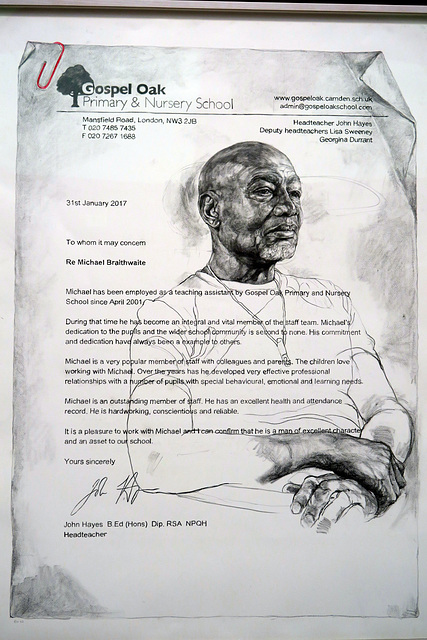 Gospel Oak
Primary & Nursery School
www.gospeloak.camden.sch.uk
admin@gospeloakschool.com
Mansfield Road, London, NW3 2JB
T 020 7485 7435
F 020 7267 1688
Headteacher John Hayes
Deputy headteachers Lisa Sweeney
Georgina Durrant
31st January 2017
To whom it may concern
Re Michael Braithwaite
Michael has been employed as a teaching assistant by Gospel Oak Primary and Nursery
School since April 2001.
During that time he has become an integral and vital member of the staff team. Michael's
dedication to the pupils and the wider school community is second to none. His commitment
and dedication have always been a example to others.
Michael is a very popular member of staff with colleagues and parents. The children love
working with Michael. Over the years he has developed very effective professional
relationships with a number of pupils with special behavioural, emotional and learning needs.
Michael is an outstanding member of staff. He has an excellent health and attendance
record. He is hardworking, conscientious and reliable.
It is a pleasure to work with Michael and I can confirm that he is a man of excellent character
and an asset to our school.
Yours sincerely
John Hayes B.Ed (Hons) Dip. RSA NPQH
Headteacher